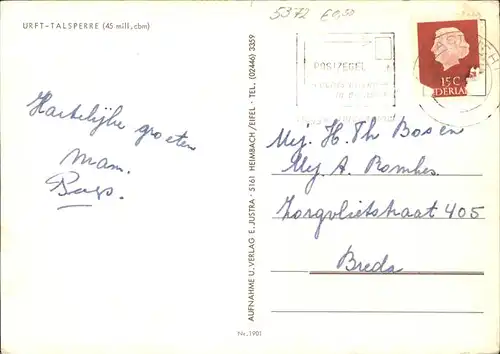 URFT-TALSPERRE (45 mill.cbm)
5372 €0,50
POSTZEGEL
15C
NEDERLAND
Hartelijke groeten
Mam.
AUFNAHME U. VERLAG E. JUSTRA · 5161 HEIMBACH/EIFEL · TEL. (02446) 3359
Mej. H. Th Bosen
Mej A. Romhes.
Zorgvlietstraat 405
Breda
Nr. 1901